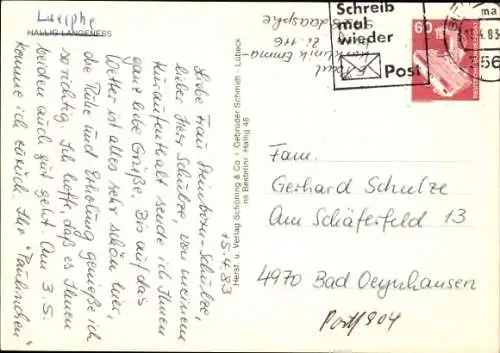 Luerphe
HALLIG LANGENESS
15.4.83
Liebe Frau Steinborn-Schulze,
lieber Herr Schulze, von meinem
Kuraufenthalt sende ich Ihnen
ganz liebe Grüße. Bis auf das
Wetter ist alles sehr schön hier,
die Ruhe und Erholung genieße ich
so richtig. Ich hoffe, daß es Ihnen
beiden auch gut geht. Am 3.5.
komme ich zurück. Ihr "Paulinchen"
Herst. u. Verlag Schöning & Co · Gebrüder Schmidt · Lübeck
Hallig 45
Kurklinik Emma
Zi. 116
Schreib
mal
wieder
Post
60
4.83
56
Fam.
Gerhard Schulze
Am Schäferfeld 13
4970 Bad Oeynhausen
Postf 804